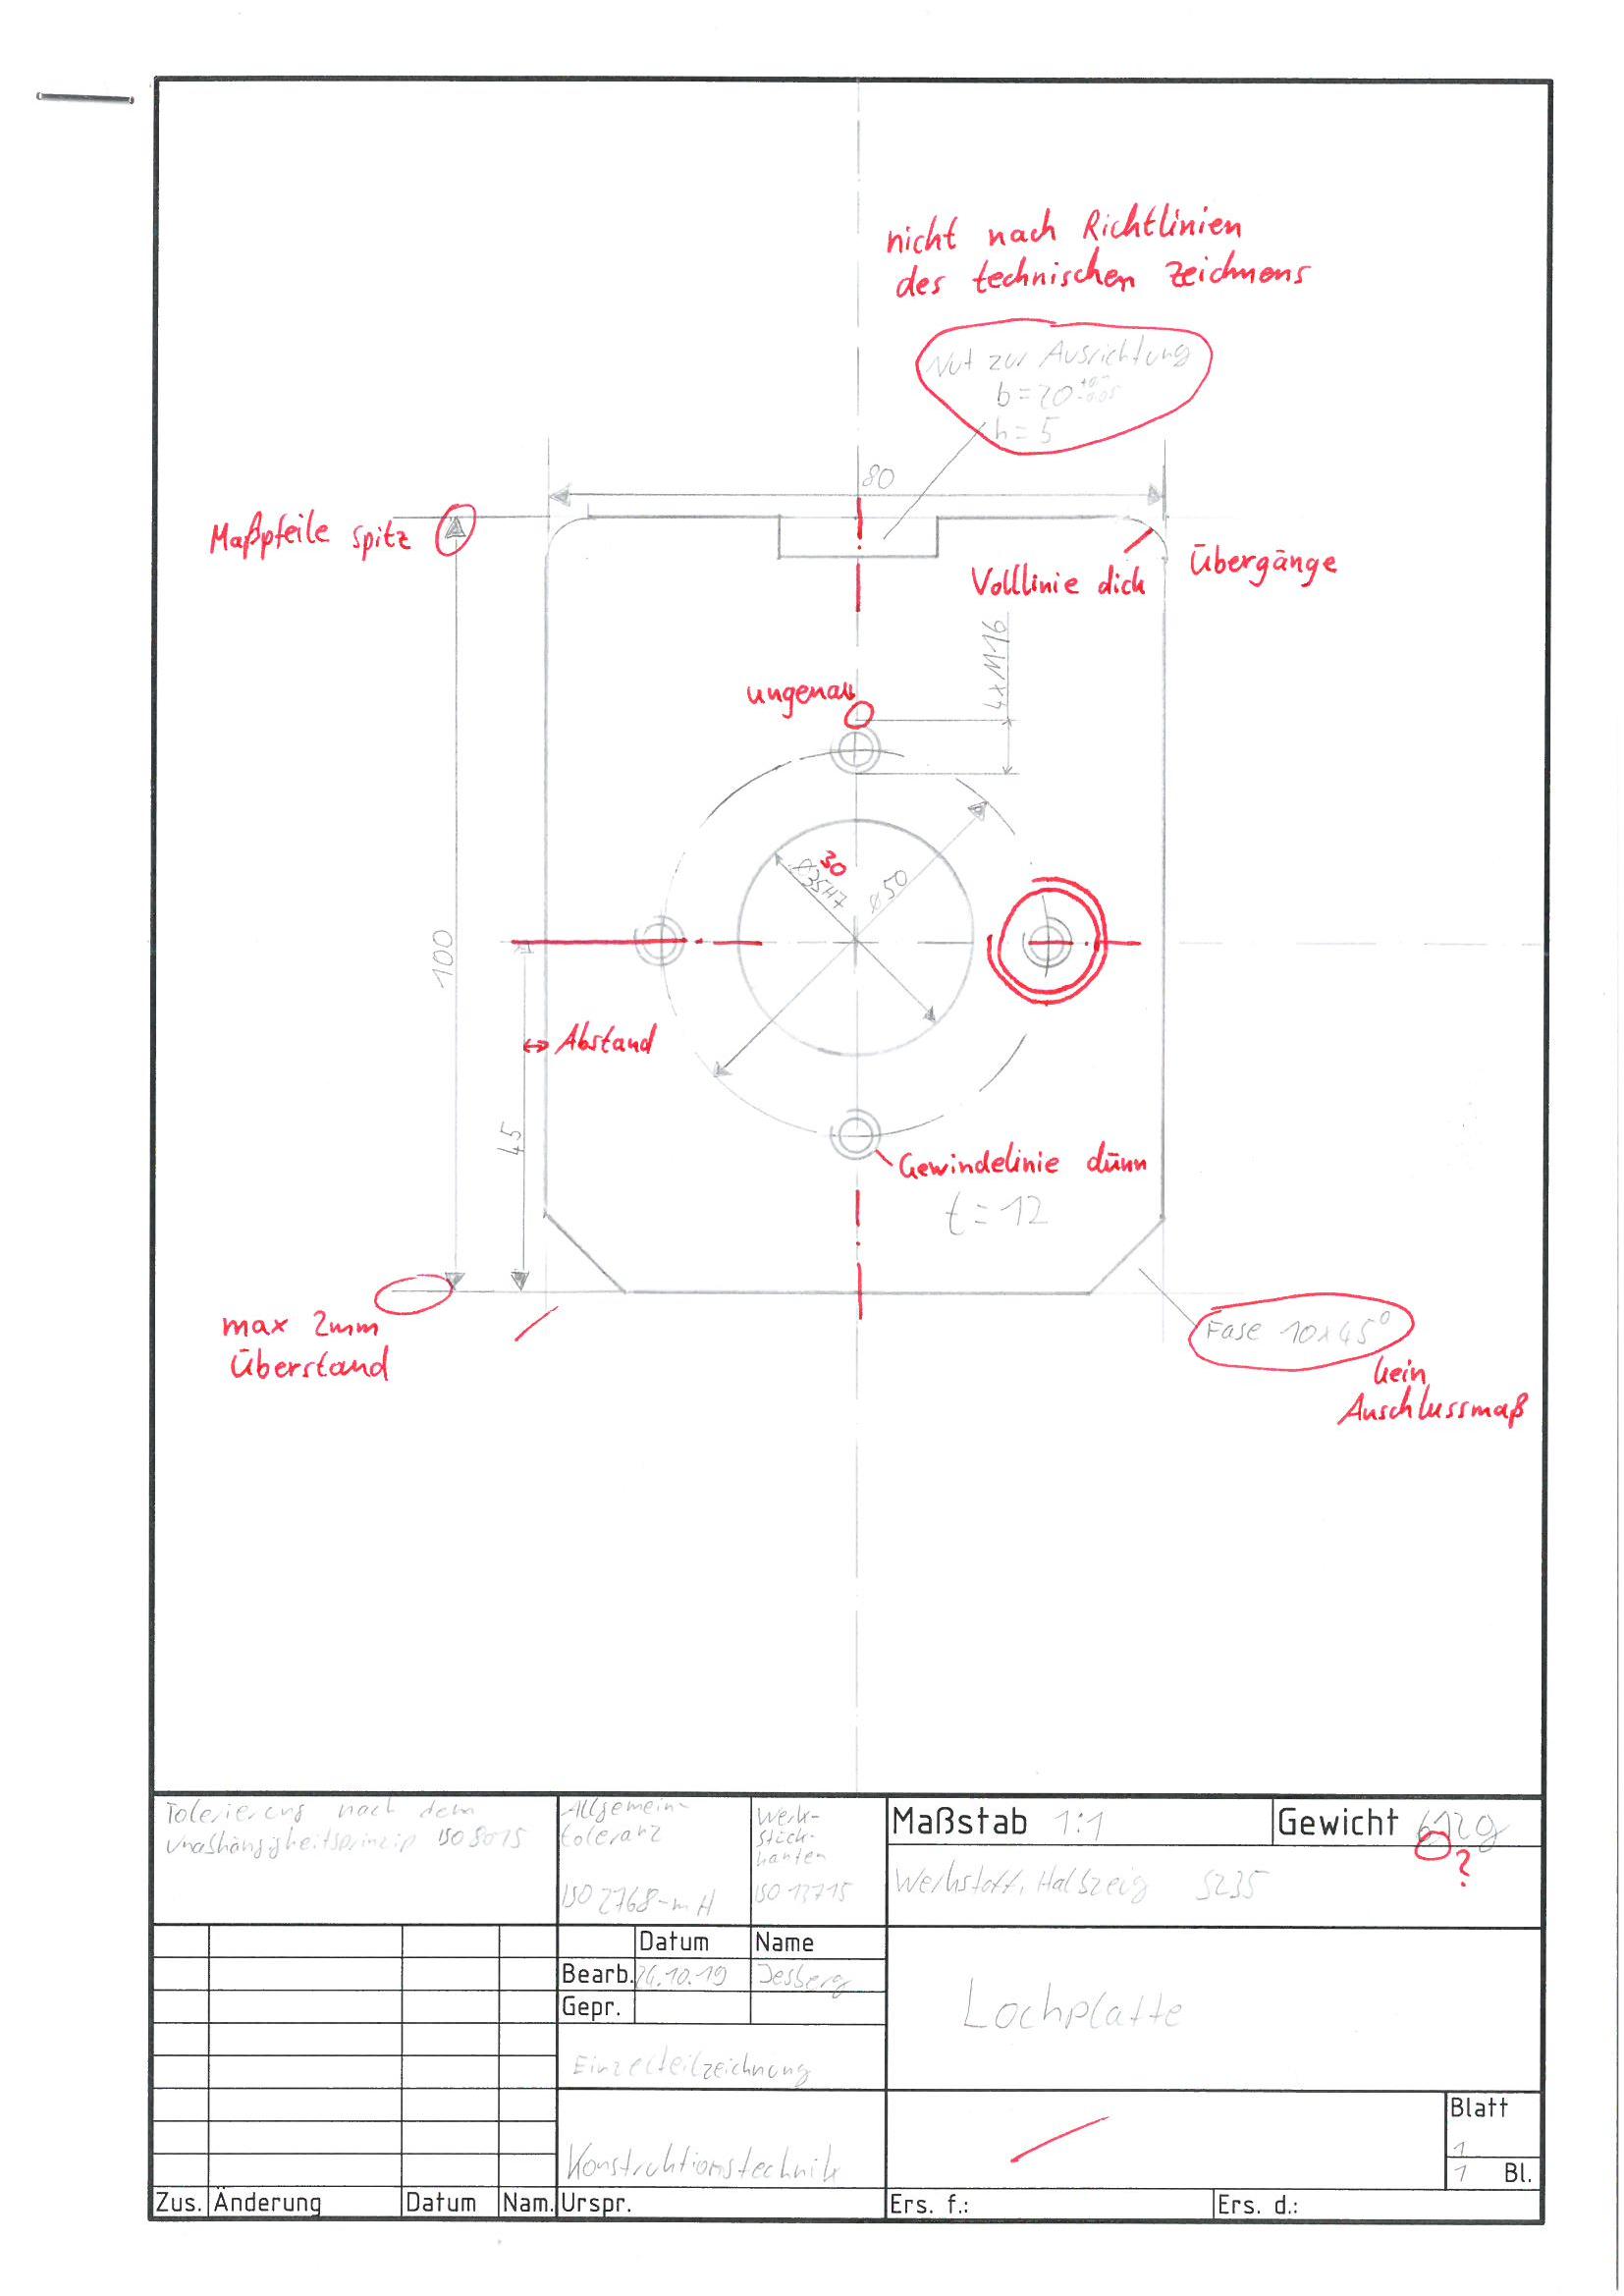 nicht nach Richtlinien
des technischen Zeichnens
Nut zur Ausrichtung
b=20
h=5
80
Maßpfeile spitz
Volllinie dick
Übergänge
4xM16
ungenau
30
Ø35H7
Ø50
100
Abstand
45
Gewindelinie dünn
t=12
max 2mm
Überstand
Fase 10x45°
kein
Anschlussmaß
Tolerierung nach dem
Unabhängigkeitsprinzip ISO 8015
Allgemein-
toleranz
ISO 2768-mH
Werk-
stück-
kanten
ISO 13715
Maßstab 1:1
Gewicht 612g
?
Werkstoff, Halbzeug S235
Datum Name
Bearb. 24.10.19 Jesberg
Gepr.
Lochplatte
Einzelteilzeichnung
Konstruktionstechnik
Blatt
1
1 Bl.
Zus. Änderung Datum Nam. Urspr. Ers. f.: Ers. d.: